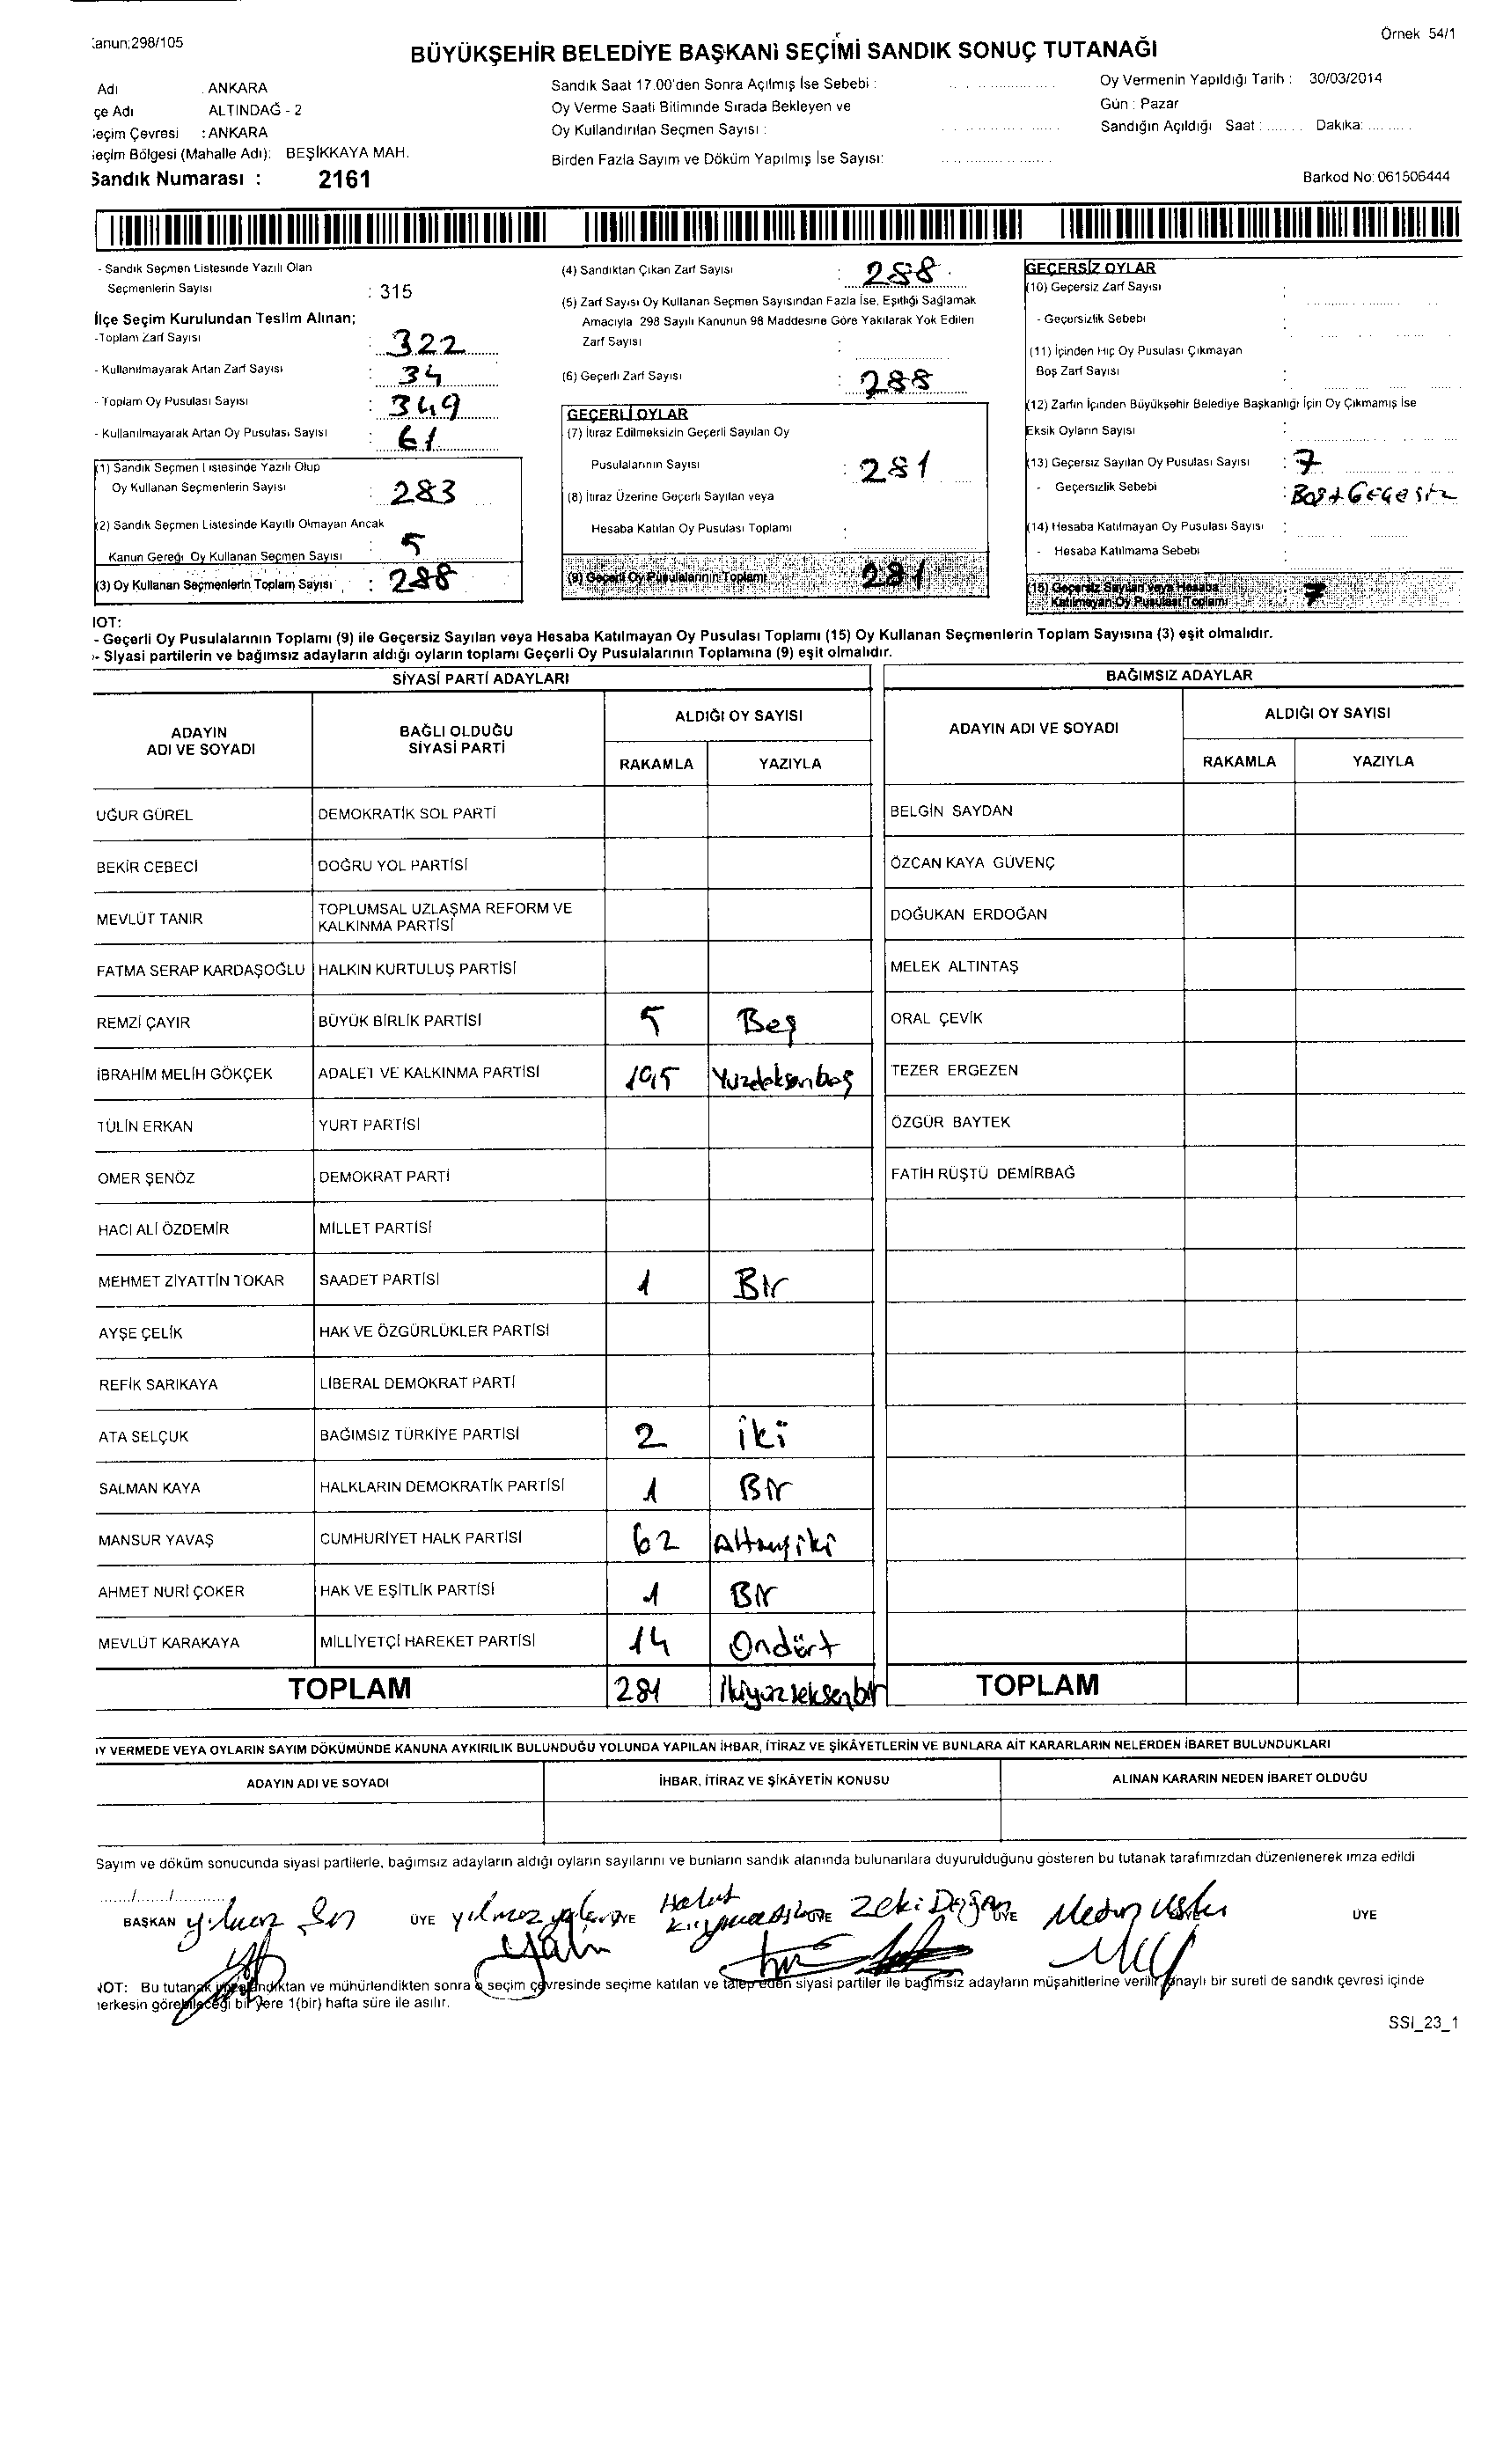 Örnek 54/1
anun:298/105
BÜYÜKŞEHİR BELEDİYE BAŞKANI SEÇİMİ SANDIK SONUÇ TUTANAĞI
Adı : ANKARA
çe Adı ALTINDAĞ - 2
eçim Çevresi : ANKARA
eçim Bölgesi (Mahalle Adı): BEŞİKKAYA MAH.
Sandık Numarası : 2161
Sandık Saat 17.00'den Sonra Açılmış İse Sebebi :
Oy Verme Saati Bitiminde Sırada Bekleyen ve
Oy Kullandırılan Seçmen Sayısı :
Birden Fazla Sayım ve Döküm Yapılmış İse Sayısı:
Oy Vermenin Yapıldığı Tarih : 30/03/2014
Gün : Pazar
Sandığın Açıldığı Saat : ....... Dakika: .........
Barkod No: 061506444
- Sandık Seçmen Listesinde Yazılı Olan
Seçmenlerin Sayısı : 315
İlçe Seçim Kurulundan Teslim Alınan;
-Toplam Zarf Sayısı : 322
- Kullanılmayarak Artan Zarf Sayısı : 34
- Toplam Oy Pusulası Sayısı : 349
- Kullanılmayarak Artan Oy Pusulası Sayısı : 61
(1) Sandık Seçmen Listesinde Yazılı Olup
Oy Kullanan Seçmenlerin Sayısı : 283
(2) Sandık Seçmen Listesinde Kayıtlı Olmayan Ancak
Kanun Gereği Oy Kullanan Seçmen Sayısı : 5
(3) Oy Kullanan Seçmenlerin Toplam Sayısı : 288
(4) Sandıktan Çıkan Zarf Sayısı : 288
(5) Zarf Sayısı Oy Kullanan Seçmen Sayısından Fazla İse, Eşitliği Sağlamak
Amacıyla 298 Sayılı Kanunun 98 Maddesine Göre Yakılarak Yok Edilen
Zarf Sayısı :
(6) Geçerli Zarf Sayısı : 288
GEÇERLİ OYLAR
(7) İtiraz Edilmeksizin Geçerli Sayılan Oy
Pusulalarının Sayısı : 281
(8) İtiraz Üzerine Geçerli Sayılan veya
Hesaba Katılan Oy Pusulası Toplamı :
(9) Geçerli Oy Pusulalarının Toplamı 281
GEÇERSİZ OYLAR
(10) Geçersiz Zarf Sayısı :
- Geçersizlik Sebebi :
(11) İçinden Hiç Oy Pusulası Çıkmayan
Boş Zarf Sayısı :
(12) Zarfın İçinden Büyükşehir Belediye Başkanlığı İçin Oy Çıkmamış İse
Eksik Oyların Sayısı :
(13) Geçersiz Sayılan Oy Pusulası Sayısı : 7
- Geçersizlik Sebebi :
(14) Hesaba Katılmayan Oy Pusulası Sayısı :
- Hesaba Katılmama Sebebi :
(15) Geçersiz Sayılan veya Hesaba
Katılmayan Oy Pusulası Toplamı 7
NOT:
- Geçerli Oy Pusulalarının Toplamı (9) ile Geçersiz Sayılan veya Hesaba Katılmayan Oy Pusulası Toplamı (15) Oy Kullanan Seçmenlerin Toplam Sayısına (3) eşit olmalıdır.
- Siyasi partilerin ve bağımsız adayların aldığı oyların toplamı Geçerli Oy Pusulalarının Toplamına (9) eşit olmalıdır.
SİYASİ PARTİ ADAYLARI
ADAYIN ADI VE SOYADI BAĞLI OLDUĞU SİYASİ PARTİ ALDIĞI OY SAYISI
RAKAMLA YAZIYLA
UĞUR GÜREL DEMOKRATİK SOL PARTİ
BEKİR CEBECİ DOĞRU YOL PARTİSİ
MEVLÜT TANIR TOPLUMSAL UZLAŞMA REFORM VE KALKINMA PARTİSİ
FATMA SERAP KARDAŞOĞLU HALKIN KURTULUŞ PARTİSİ
REMZİ ÇAYIR BÜYÜK BİRLİK PARTİSİ 5 Beş
İBRAHİM MELİH GÖKÇEK ADALET VE KALKINMA PARTİSİ 195 Yüzdoksanbeş
TÜLİN ERKAN YURT PARTİSİ
ÖMER ŞENÖZ DEMOKRAT PARTİ
HACI ALİ ÖZDEMİR MİLLET PARTİSİ
MEHMET ZİYATTİN TOKAR SAADET PARTİSİ 1 Bir
AYŞE ÇELİK HAK VE ÖZGÜRLÜKLER PARTİSİ
REFİK SARIKAYA LİBERAL DEMOKRAT PARTİ
ATA SELÇUK BAĞIMSIZ TÜRKİYE PARTİSİ 2 iki
SALMAN KAYA HALKLARIN DEMOKRATİK PARTİSİ 1 Bir
MANSUR YAVAŞ CUMHURİYET HALK PARTİSİ 62 Altmışiki
AHMET NURİ ÇOKER HAK VE EŞİTLİK PARTİSİ 1 Bir
MEVLÜT KARAKAYA MİLLİYETÇİ HAREKET PARTİSİ 14 Ondört
TOPLAM 281 İkiyüzseksenbir
BAĞIMSIZ ADAYLAR
ADAYIN ADI VE SOYADI ALDIĞI OY SAYISI
RAKAMLA YAZIYLA
BELGİN SAYDAN
ÖZCAN KAYA GÜVENÇ
DOĞUKAN ERDOĞAN
MELEK ALTINTAŞ
ORAL ÇEVİK
TEZER ERGEZEN
ÖZGÜR BAYTEK
FATİH RÜŞTÜ DEMİRBAĞ
TOPLAM
Y VERMEDE VEYA OYLARIN SAYIM DÖKÜMÜNDE KANUNA AYKIRILIK BULUNDUĞU YOLUNDA YAPILAN İHBAR, İTİRAZ VE ŞİKÂYETLERİN VE BUNLARA AİT KARARLARIN NELERDEN İBARET BULUNDUKLARI
ADAYIN ADI VE SOYADI İHBAR, İTİRAZ VE ŞİKÂYETİN KONUSU ALINAN KARARIN NEDEN İBARET OLDUĞU
Sayım ve döküm sonucunda siyasi partilerle, bağımsız adayların aldığı oyların sayılarını ve bunların sandık alanında bulunanlara duyurulduğunu gösteren bu tutanak tarafımızdan düzenlenerek imza edildi
....../....../..........
BAŞKAN ÜYE yılmaz ÜYE ÜYE Zeki Doğan ÜYE ÜYE ÜYE
NOT: Bu tutanak imzalandıktan ve mühürlendikten sonra o seçim çevresinde seçime katılan ve talep eden siyasi partiler ile bağımsız adayların müşahitlerine verilir onaylı bir sureti de sandık çevresi içinde
herkesin görebileceği bir yere 1(bir) hafta süre ile asılır.
SSI_23_1